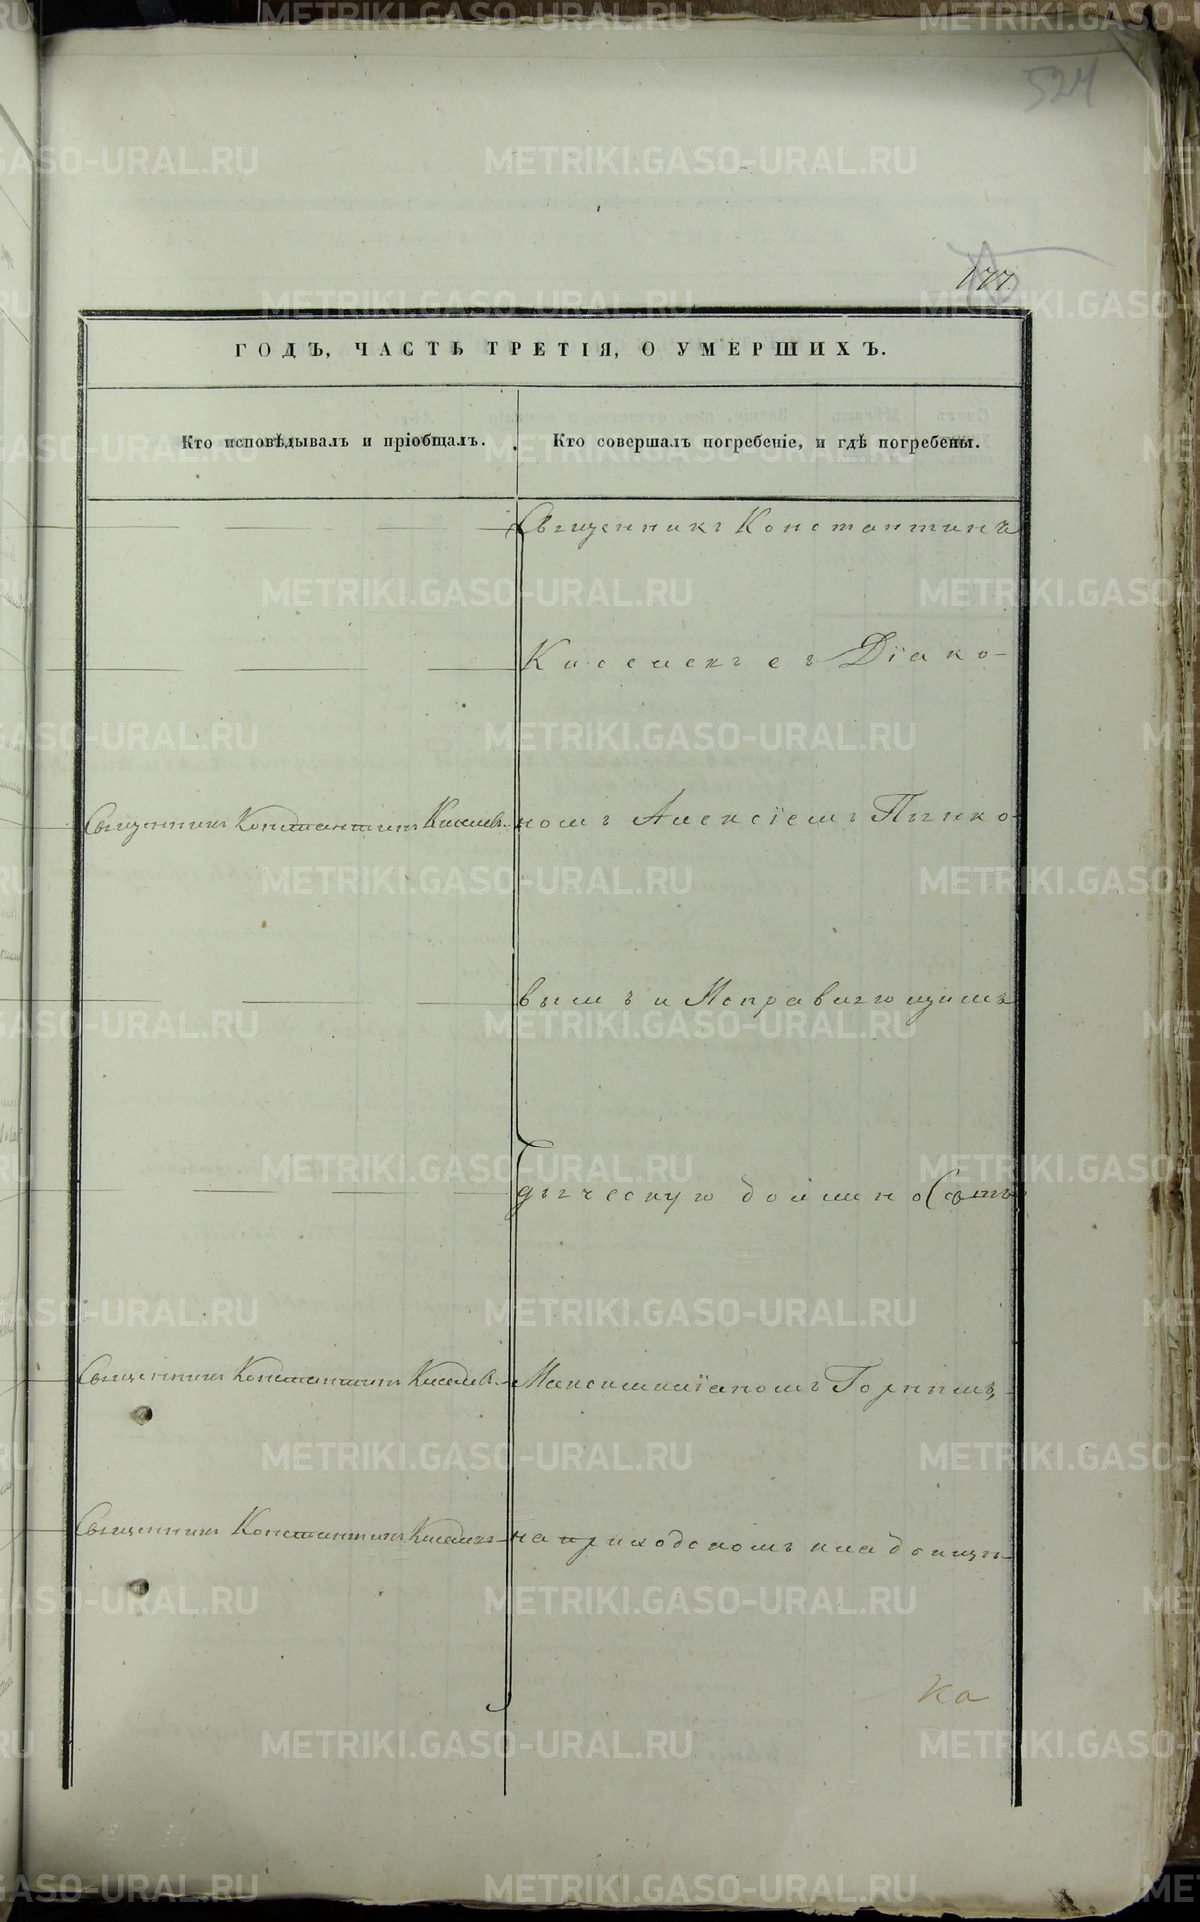 524
177.
ГОДЪ, ЧАСТЬ ТРЕТІЯ, О УМЕРШИХЪ.
Кто исповѣдывалъ и пріобщалъ.
Кто совершалъ погребеніе, и гдѣ погребены.
Священникъ Константинъ
Киселевъ съ Діако-
Священникъ Константинъ Киселевъ.
номъ Алексіемъ Пѣнко-
вымъ и Исправляющимъ
дьяческую должность
Священникъ Константинъ Киселевъ.
Максимиліаномъ Горнымъ,
Священникъ Константинъ Киселевъ
на приходскомъ кладбищѣ
METRIKI.GASO-URAL.RU